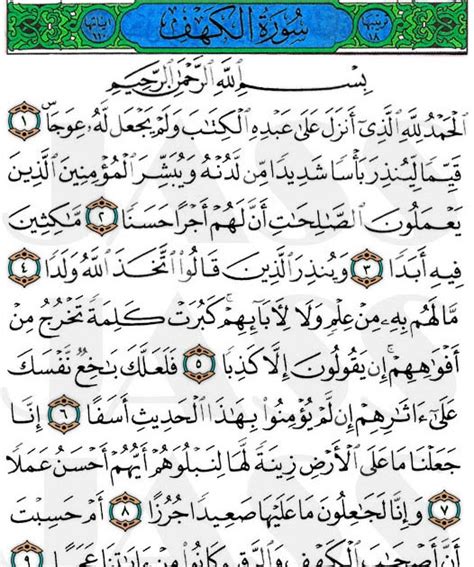 ترتيبها ١٨ سُورَةُ الكَهْفِ آياتها ١١٠
بِسْمِ اللَّهِ الرَّحْمَٰنِ الرَّحِيمِ
الْحَمْدُ لِلَّهِ الَّذِي أَنزَلَ عَلَىٰ عَبْدِهِ الْكِتَابَ وَلَمْ يَجْعَل لَّهُ عِوَجًا ۜ ١
قَيِّمًا لِّيُنذِرَ بَأْسًا شَدِيدًا مِّن لَّدُنْهُ وَيُبَشِّرَ الْمُؤْمِنِينَ الَّذِينَ
يَعْمَلُونَ الصَّالِحَاتِ أَنَّ لَهُمْ أَجْرًا حَسَنًا ٢ مَّاكِثِينَ
فِيهِ أَبَدًا ٣ وَيُنذِرَ الَّذِينَ قَالُوا اتَّخَذَ اللَّهُ وَلَدًا ٤
مَّا لَهُم بِهِ مِنْ عِلْمٍ وَلَا لِآبَائِهِمْ ۚ كَبُرَتْ كَلِمَةً تَخْرُجُ مِنْ
أَفْوَاهِهِمْ ۚ إِن يَقُولُونَ إِلَّا كَذِبًا ٥ فَلَعَلَّكَ بَاخِعٌ نَّفْسَكَ
عَلَىٰ آثَارِهِمْ إِن لَّمْ يُؤْمِنُوا بِهَٰذَا الْحَدِيثِ أَسَفًا ٦ إِنَّا
جَعَلْنَا مَا عَلَى الْأَرْضِ زِينَةً لَّهَا لِنَبْلُوَهُمْ أَيُّهُمْ أَحْسَنُ عَمَلًا
٧ وَإِنَّا لَجَاعِلُونَ مَا عَلَيْهَا صَعِيدًا جُرُزًا ٨ أَمْ حَسِبْتَ
أَنَّ أَصْحَابَ الْكَهْفِ وَالرَّقِيمِ كَانُوا مِنْ آيَاتِنَا عَجَبًا ٩
JASS
JASS
JASS